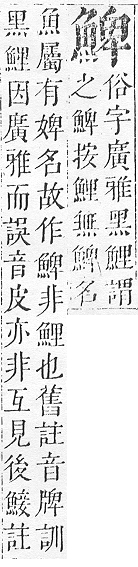 䱝
俗字廣雅黑鯉謂
之䱝按鯉無䱝名
魚屬有婢名故作䱝非鯉也舊註音牌訓
黑鯉因廣雅而誤音皮亦非互見後鯜註